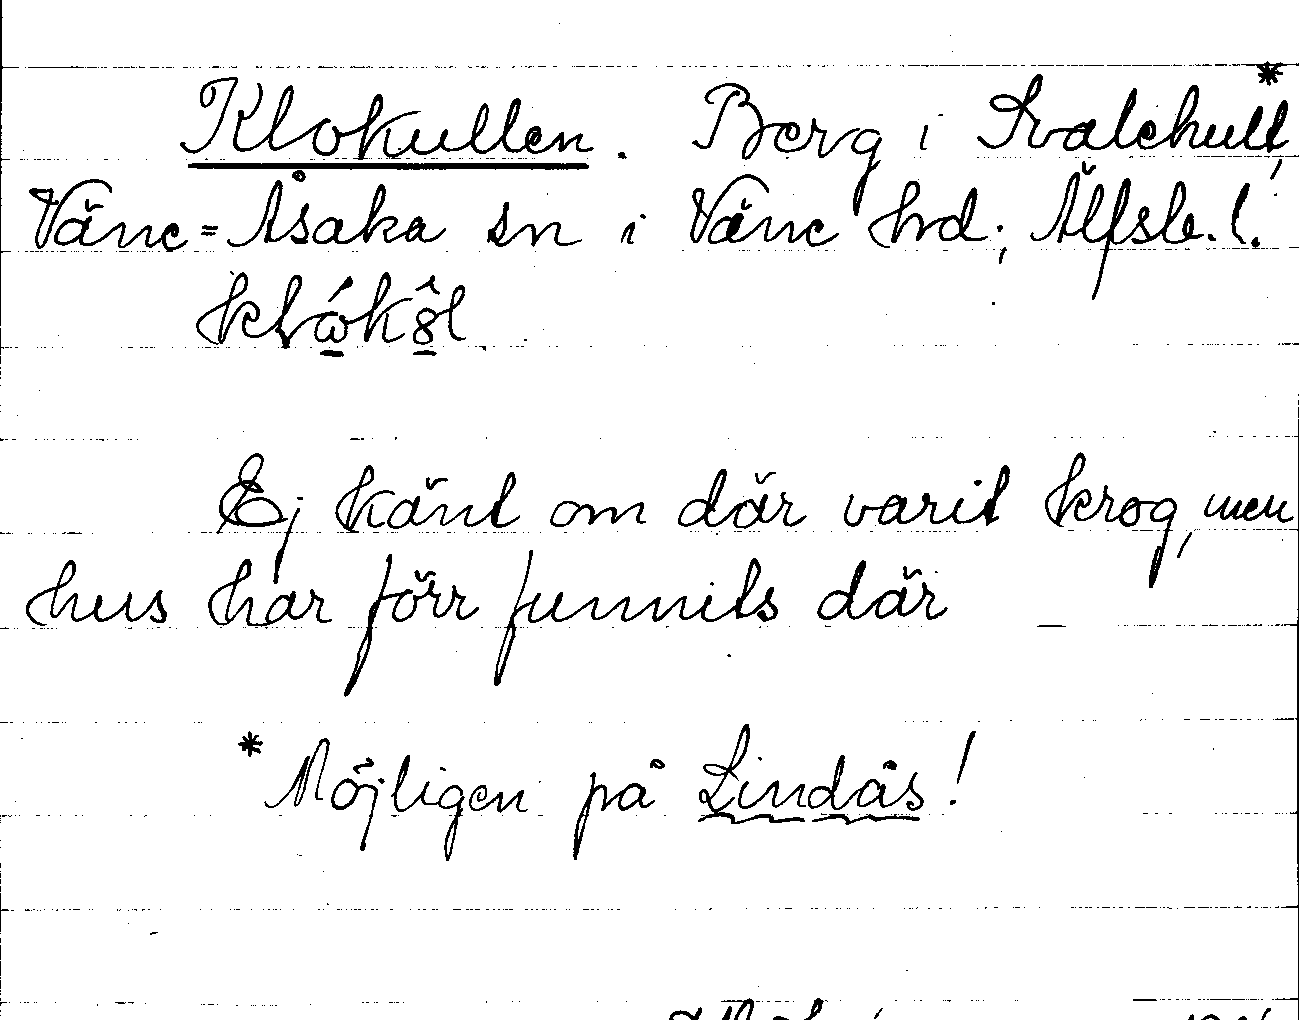 Klokullen. Berg i Svalehult*,
Väne=Åsaka sn i Väne hrd; Älfsb. l.
Ej känt om där varit krog, men
hus har förr funnits där
* Möjligen på Lindås!